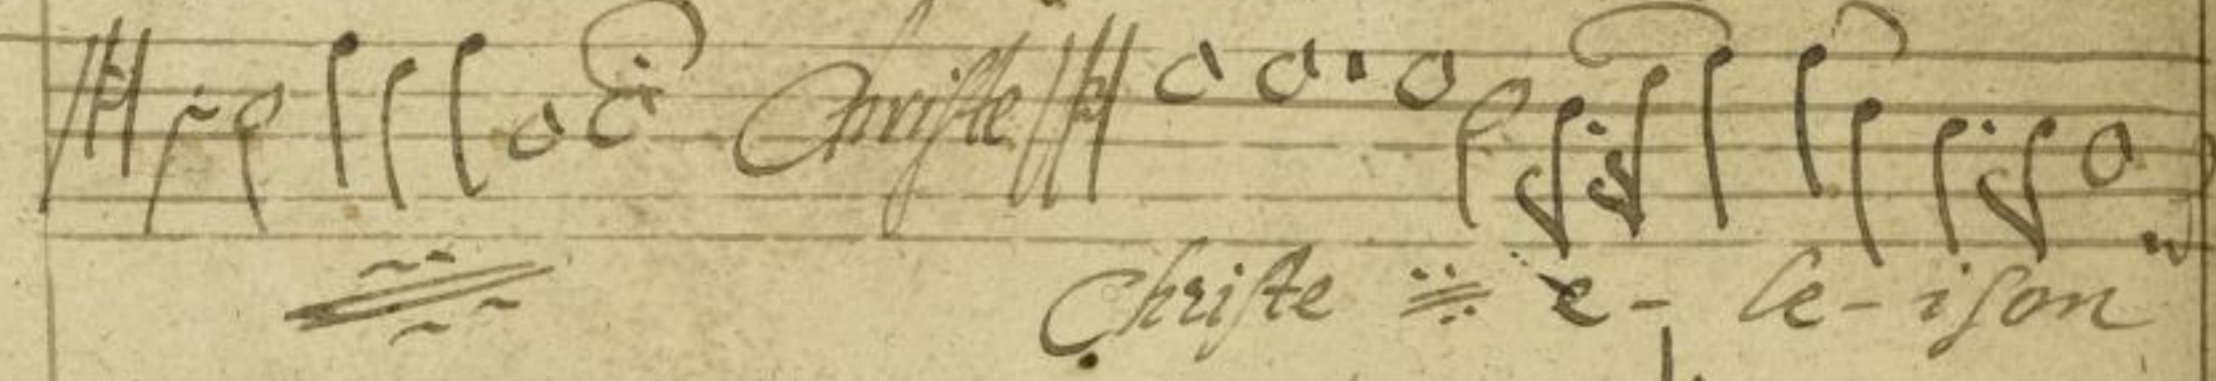 Christe
Christe e- le- ison